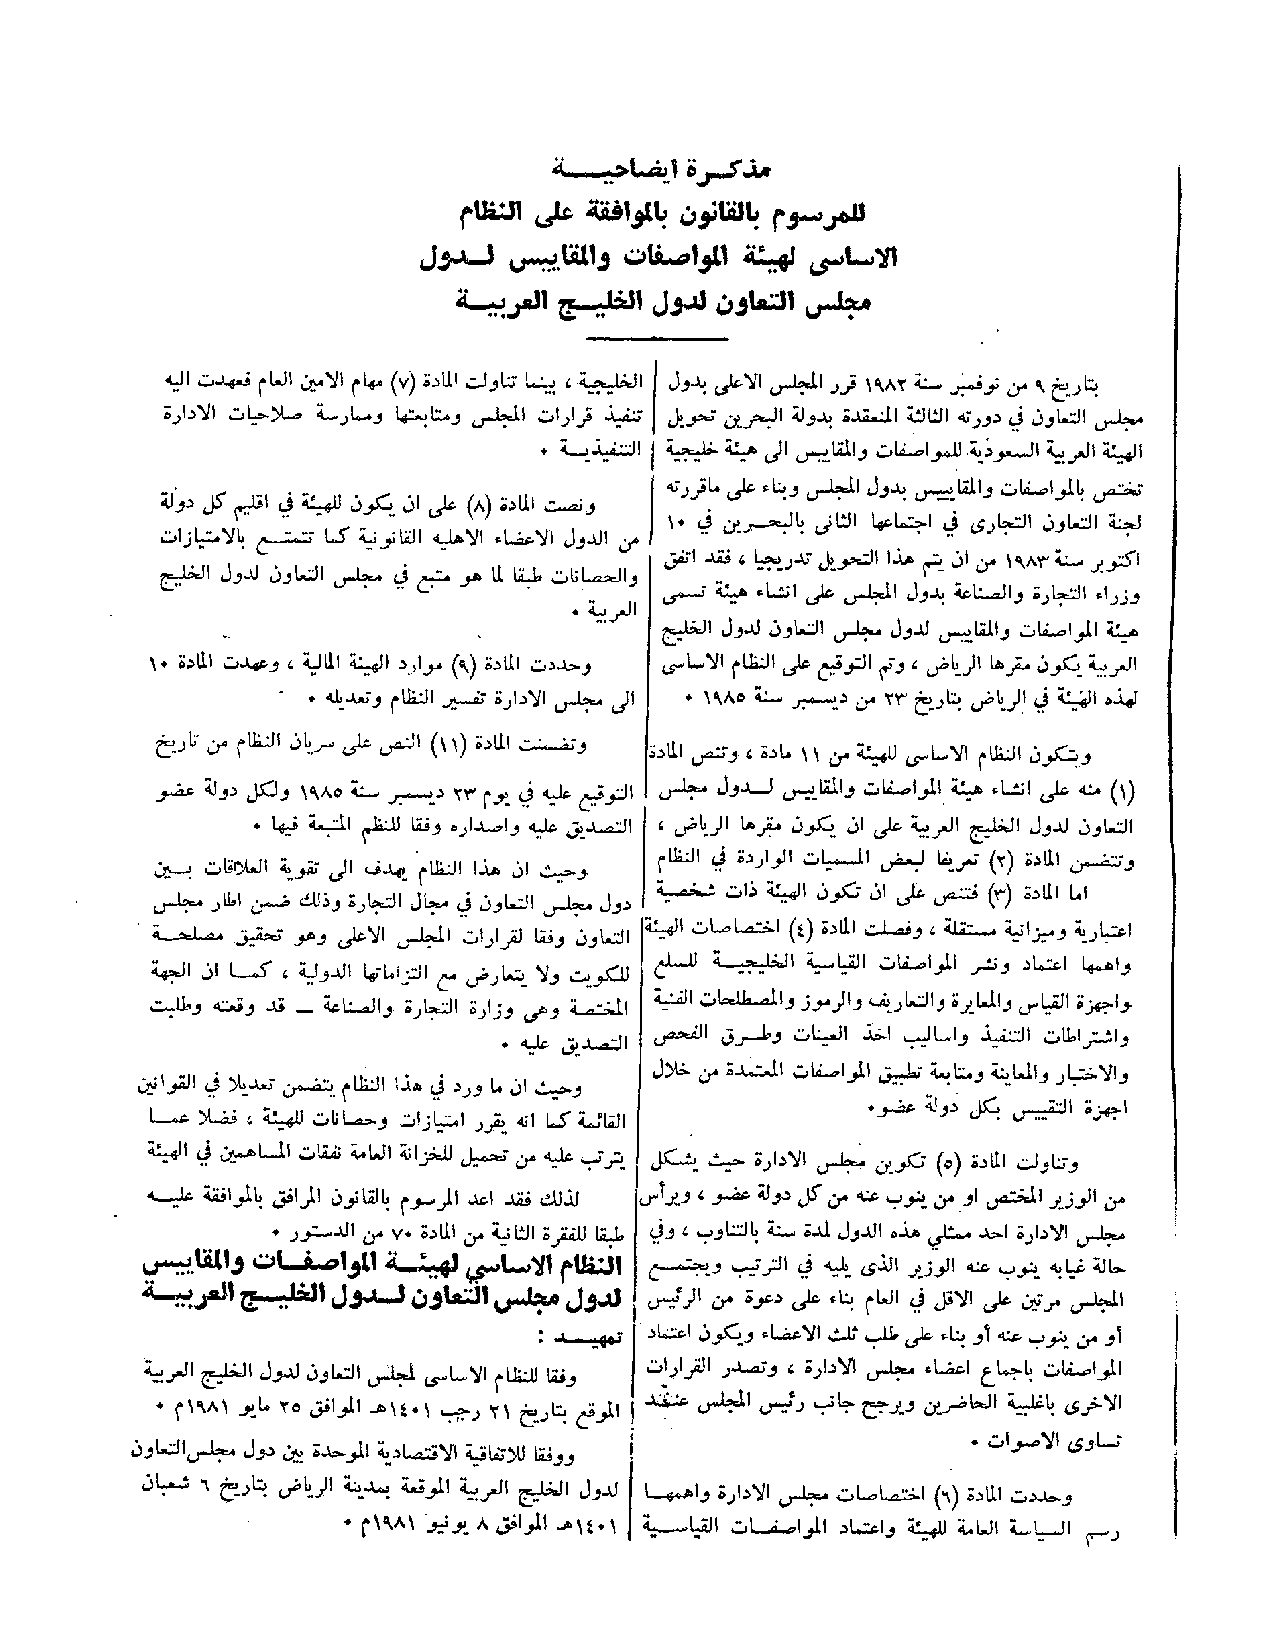 مذكـرة ايضاحيـــة
للمرسوم بالقانون بالموافقة على النظام
الاساسى لهيئة المواصفات والمقاييس لـدول
مجلس التعاون لدول الخليـج العربيـة
بتاريخ ٩ من نوفمبر سنة ١٩٨٢ قرر المجلس الاعلى بدول
مجلس التعاون في دورته الثالثة المنعقدة بدولة البحرين تحويل
الهيئة العربية السعودية للمواصفات والمقاييس الى هيئة خليجية
تختص بالمواصفات والمقاييس بدول المجلس وبناء على ماقررته
لجنة التعاون التجارى في اجتماعها الثانى بالبحـرين في ١٠
اكتوبر سنة ١٩٨٣ من ان يتم هذا التحويل تدريجيا ، فقد اتفق
وزراء التجارة والصناعة بدول المجلس على انشاء هيئة تسمى
هيئة المواصفات والمقاييس لدول مجلس التعاون لدول الخليج
العربية يكون مقرها الرياض ، وتم التوقيع على النظام الاساسى
لهذه الهيئة في الرياض بتاريخ ٢٣ من ديسمبر سنة ١٩٨٥ ٠
ويتكون النظام الاساسى للهيئة من ١١ مادة ، وتنص المادة
(١) منه على انشاء هيئة المواصفات والمقاييس لـدول مجلس
التعاون لدول الخليج العربية على ان يكون مقرها الرياض ،
وتتضمن المادة (٢) تعريفا لبعض المسميات الواردة في النظام
اما المادة (٣) فتنص على ان تكون الهيئة ذات شخصية
اعتبارية وميزانية مستقلة ، وفصلت المادة (٤) اختصاصات الهيئة
واهمها اعتماد ونشر المواصفات القياسية الخليجيـة للسلع
واجهزة القياس والمعايرة والتعاريف والرموز والمصطلحات الفنية
واشتراطات التنفيذ واساليب اخذ العينات وطـرق الفحص
والاختبار والمعاينة ومتابعة تطبيق المواصفات المعتمدة من خلال
اجهزة التقييس بكل دولة عضو٠
وتناولت المادة (٥) تكوين مجلس الادارة حيث يشكل
من الوزير المختص او من ينوب عنه من كل دولة عضو ، ويرأس
مجلس الادارة احد ممثلي هذه الدول لمدة سنة بالتناوب ، وفي
حالة غيابه ينوب عنه الوزير الذى يليه في الترتيب ويجتمـع
المجلس مرتين على الاقل في العام بناء على دعوة من الرئيس
أو من ينوب عنه أو بناء على طلب ثلث الاعضاء ويكون اعتماد
المواصفات باجماع اعضاء مجلس الادارة ، وتصدر القرارات
الاخرى باغلبية الحاضرين ويرجح جانب رئيس المجلس عنـد
تساوى الاصوات ٠
وحددت المادة (٦) اختصاصات مجلس الادارة واهمهـا
رسم السياسة العامة للهيئة واعتماد المواصفات القياسـية
الخليجية ، بينما تناولت المادة (٧) مهام الامين العام فعهدت اليه
تنفيذ قرارات المجلس ومتابعتها وممارسة صلاحيات الادارة
التنفيذيـة ٠
ونصت المادة (٨) على ان يكون للهيئة في اقليم كل دولة
من الدول الاعضاء الاهلية القانونية كما تتمتـع بالامتيازات
والحصانات طبقا لما هو متبع في مجلس التعاون لدول الخليج
العربية ٠
وحددت المادة (٩) موارد الهيئة المالية ، وعهدت المادة ١٠
الى مجلس الادارة تفسير النظام وتعديله ٠
وتضمنت المادة (١١) النص على سريان النظام من تاريخ
التوقيع عليه في يوم ٢٣ ديسمبر سنة ١٩٨٥ ولكل دولة عضو
التصديق عليه واصداره وفقا للنظم المتبعة فيها ٠
وحيث ان هذا النظام يهدف الى تقوية العلاقات بـين
دول مجلس التعاون في مجال التجارة وذلك ضمن اطار مجلس
التعاون وفقا لقرارات المجلس الاعلى وهو تحقيق مصلحـة
للكويت ولا يتعارض مع التزاماتها الدولية ، كمـا ان الجهة
المختصة وهى وزارة التجارة والصناعة ــ قد وقعته وطلبت
التصديق عليه ٠
وحيث ان ما ورد في هذا النظام يتضمن تعديلا في القوانين
القائمة كما انه يقرر امتيازات وحصانات للهيئة ، فضلا عمـا
يترتب عليه من تحميل للخزانة العامة نفقات المساهمين في الهيئة
لذلك فقد اعد المرسوم بالقانون المرافق بالموافقة عليـه
طبقا للفقرة الثانية من المادة ٧٠ من الدستور ٠
النظام الاساسي لهيئـة المواصفـات والمقاييس
لدول مجلس التعاون لـدول الخليـج العربيـة
تمهيـد :
وفقا للنظام الاساسى لمجلس التعاون لدول الخليج العربية
الموقع بتاريخ ٢١ رجب ١٤٠١هـ الموافق ٢٥ مايو ١٩٨١م ٠
ووفقا للاتفاقية الاقتصادية الموحدة بين دول مجلس التعاون
لدول الخليج العربية الموقعة بمدينة الرياض بتاريخ ٦ شعبان
١٤٠١هـ الموافق ٨ يونيو ١٩٨١م ٠